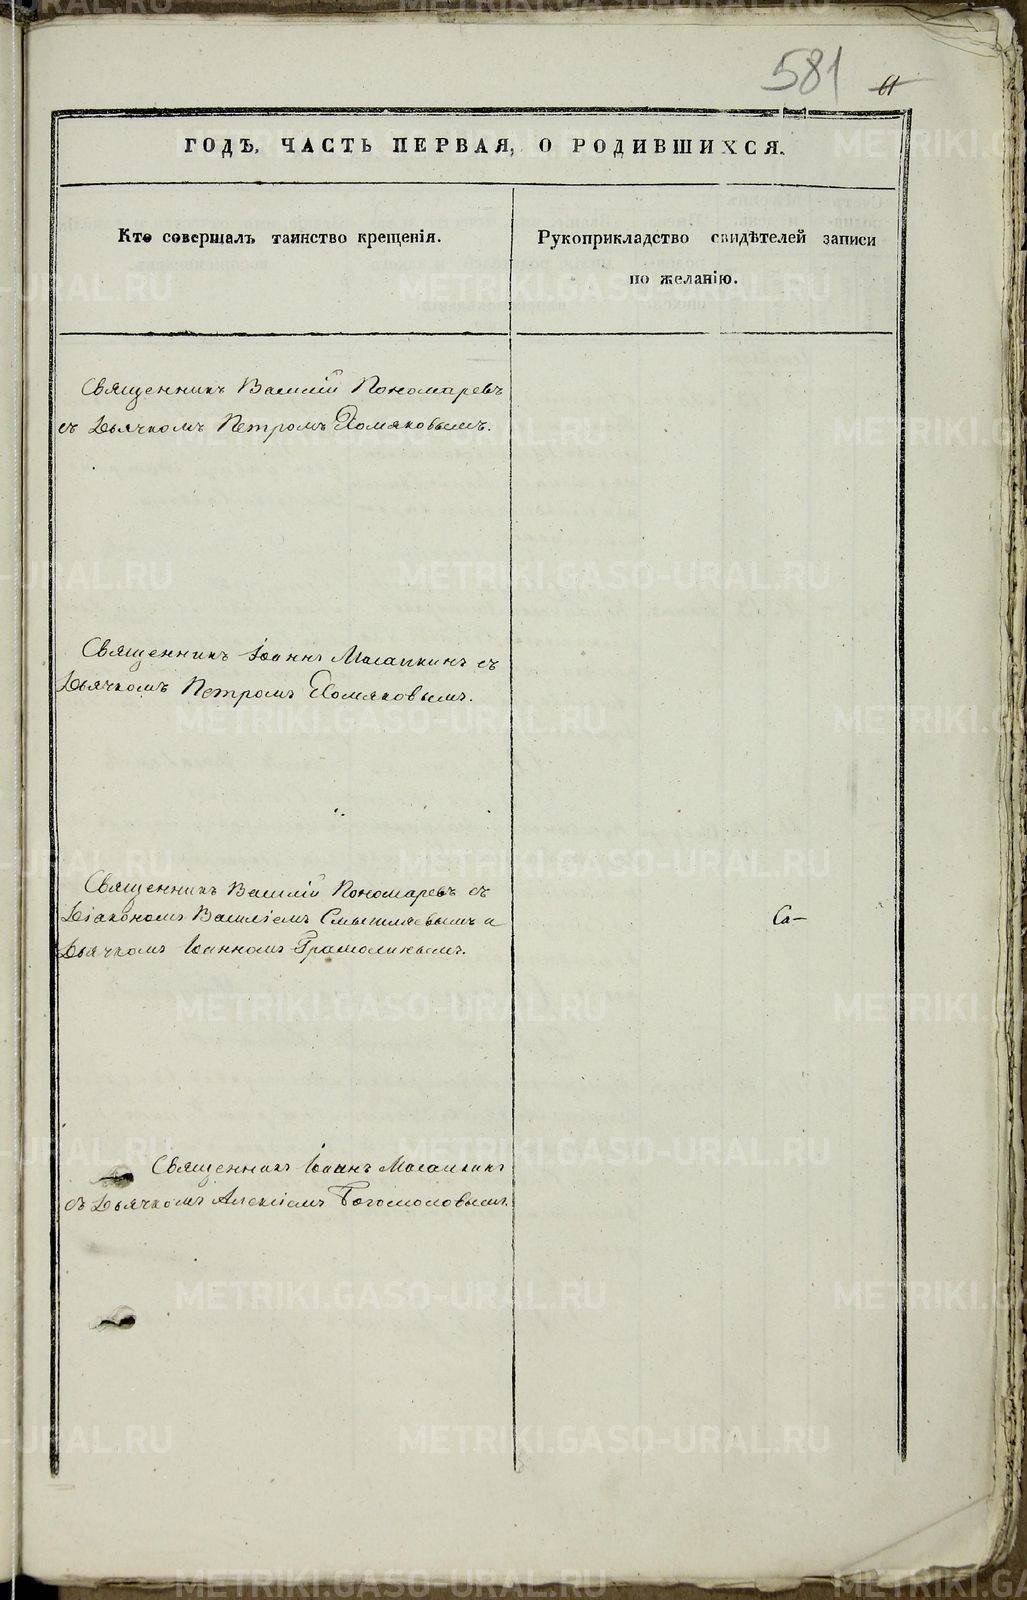 581 61
ГОДЪ, ЧАСТЬ ПЕРВАЯ, О РОДИВШИХСЯ.
Кто совершалъ таинство крещенія.
Рукоприкладство свидѣтелей записи
по желанію.
Священникъ Василій Пономаревъ
съ Дьячкомъ Петромъ Хомяковымъ.
Священникъ Іоаннъ съ
Дьячкомъ Петромъ Хомяковымъ.
Священникъ Василій Пономаревъ съ
Діакономъ Василіемъ Смышляевымъ и
Дьячкомъ Іоанномъ Грамолинымъ.
Са-
Священникъ Іоаннъ
съ Дьячкомъ Алексіемъ Богомоловымъ.
METRIKI.GASO-URAL.RU